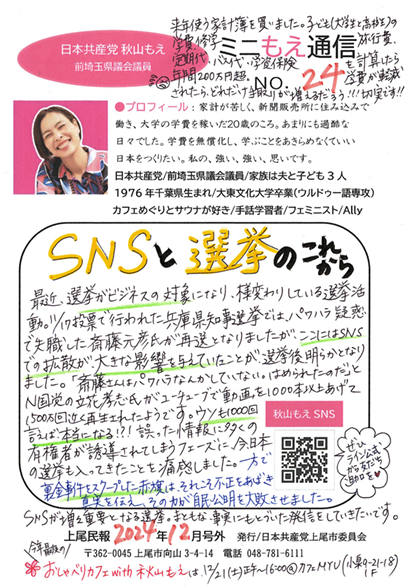 日本共産党 秋山もえ
前埼玉県議会議員
ミニもえ通信
NO.24
来年使う家計簿を買いました。子ども(大学生と高校生)の
学費・修学旅行費、
定期代・バス代・学資保険を計算したら
年間200万円超。学費が軽減
されたら、どれだけ手取りが増えるだろう!!!切実です!!
●プロフィール:家計が苦しく、新聞販売所に住み込みで
働き、大学の学費を稼いだ20歳のころ。あまりにも過酷な
日々でした。学費を無償化し、学ぶことをあきらめなくていい
日本をつくりたい。私の、強い、強い、思いです。
日本共産党/前埼玉県議会議員/家族は夫と子ども3人
1976年千葉県生まれ/大東文化大学卒業(ウルドゥー語専攻)
カフェめぐりとサウナが好き/手話学習者/フェミニスト/Ally
SNSと選挙のこれから
最近、選挙がビジネスの対象になり、様変わりしている選挙活
動。11/17投票で行われた兵庫県知事選挙では、パワハラ疑惑
で失職した斎藤元彦氏が再選となりましたが、ここにはSNS
での拡散が大きな影響を与えていたことが選挙後明らかとなり
ました。「斎藤さんはパワハラなんかしていない。はめられたのだ」と
N国党の立花孝志氏がユーチューブで動画を100本以上あげて
1500万回近く再生されたようです。ウソも1000回
言えば本当になる!?!誤った情報に多くの
有権者が誘導されてしまうフェーズに、今日本
の選挙も入ってきたことを痛感しました。一方で
裏金事件をスクープした赤旗は、それに不正をあばき
真実を伝え、その力が自民公明を大敗させました。
SNSが増々重要となる選挙。まともな事実にもとづいた発信をしていきたいです。
秋山もえ SNS
ぜひ
ライン公式
から友だち
上尾民報 2024年12月号外 発行/日本共産党上尾市委員会
〒362-0045 上尾市向山3-4-14 電話 048-781-6111
今年最後の!
おしゃべりカフェwith秋山もえは、12/21(土)正午〜16:00@カフェMYU(小泉9-21-18)
1F